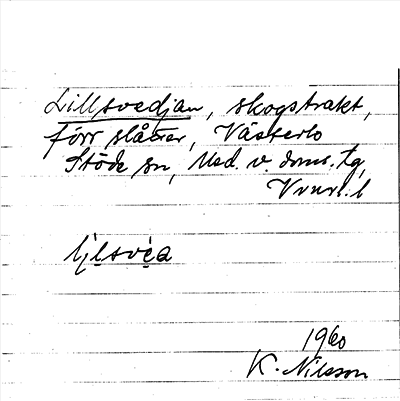 Lillsvedjan, skogstrakt,
förr slåtter, Västerlo
Stöde sn, Med. v. doms. tg,
Vnrl. l
1960
K. Nilsson